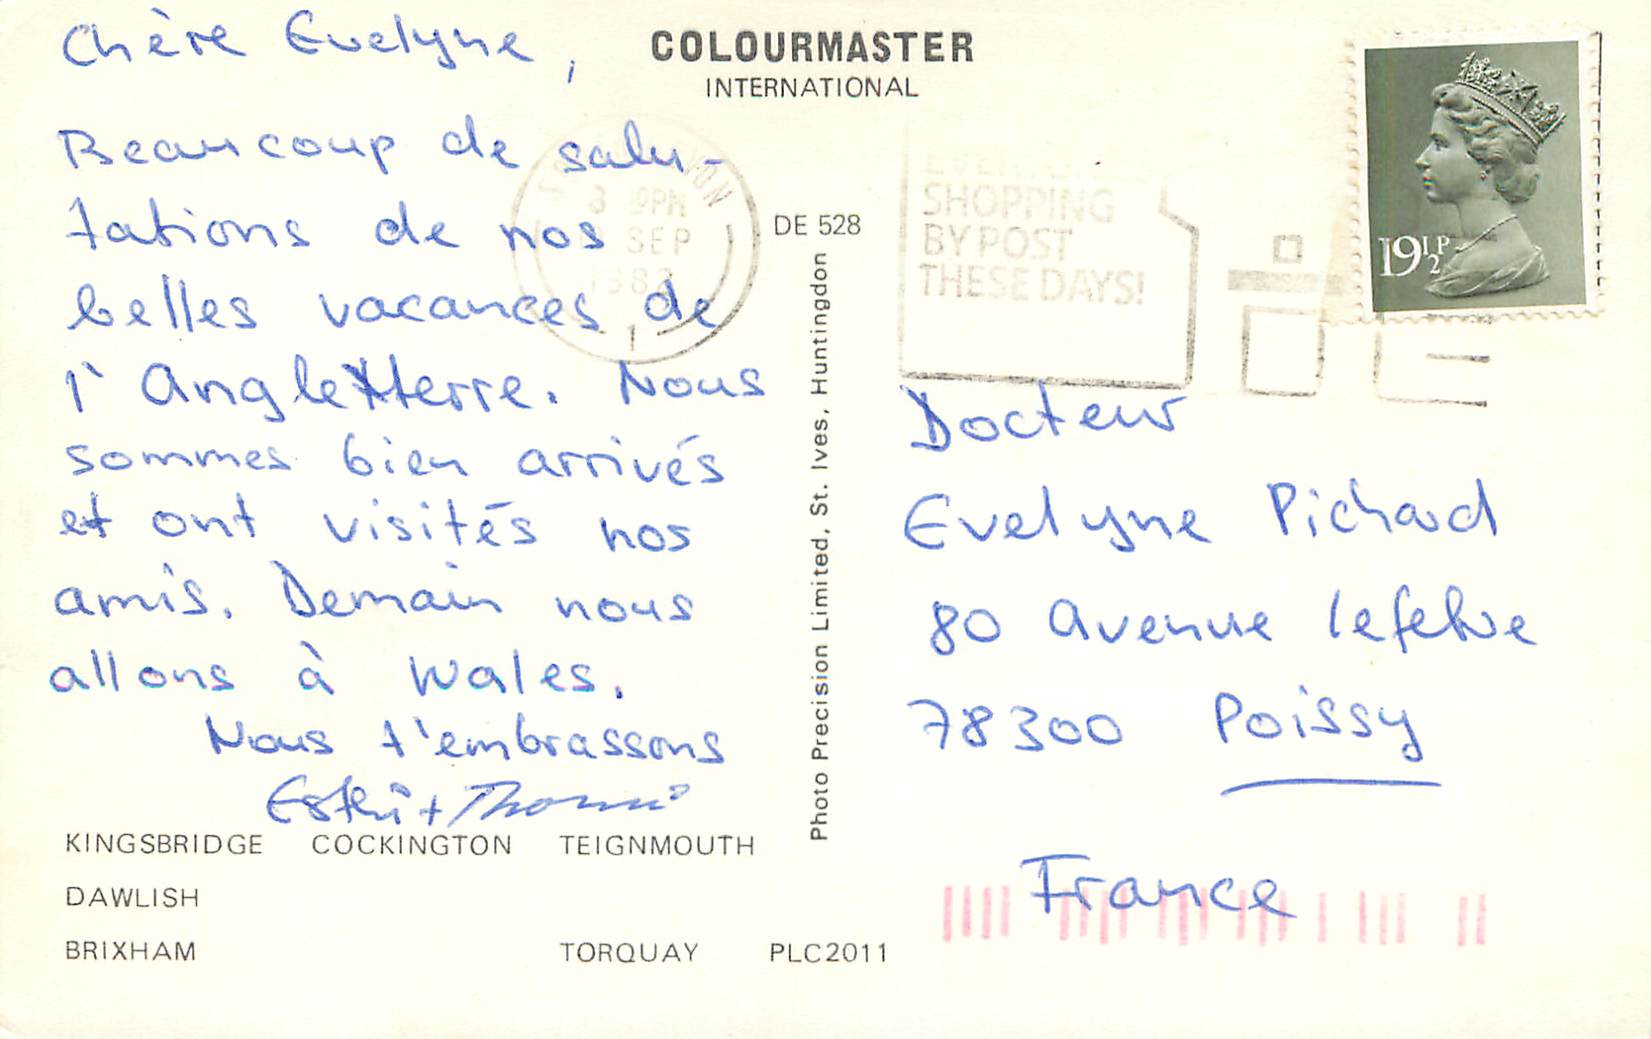 Chère Evelyne,
Beaucoup de salu-
tations de nos
belles vacances de
l'Angletterre. Nous
sommes bien arrivés
et ont visités nos
amis. Demain nous
allons à Wales.
Nous t'embrassons
+ Thomas
KINGSBRIDGE COCKINGTON TEIGNMOUTH
DAWLISH
BRIXHAM TORQUAY PLC2011
COLOURMASTER
INTERNATIONAL
DE 528
Photo Precision Limited, St. Ives, Huntingdon
SEP
SHOPPING
BY POST
THESE DAYS!
19½P
Docteur
Evelyne Pichard
80 Avenue Lefebvre
78300 Poissy
France